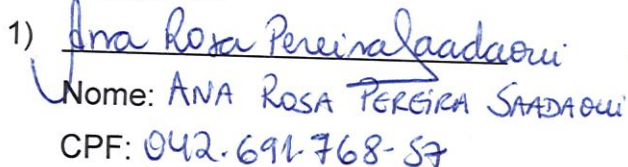 1) Ana Rosa Pereira Saadaoui
Nome: ANA ROSA PEREIRA SAADAOUI
CPF: 042.691.768-57